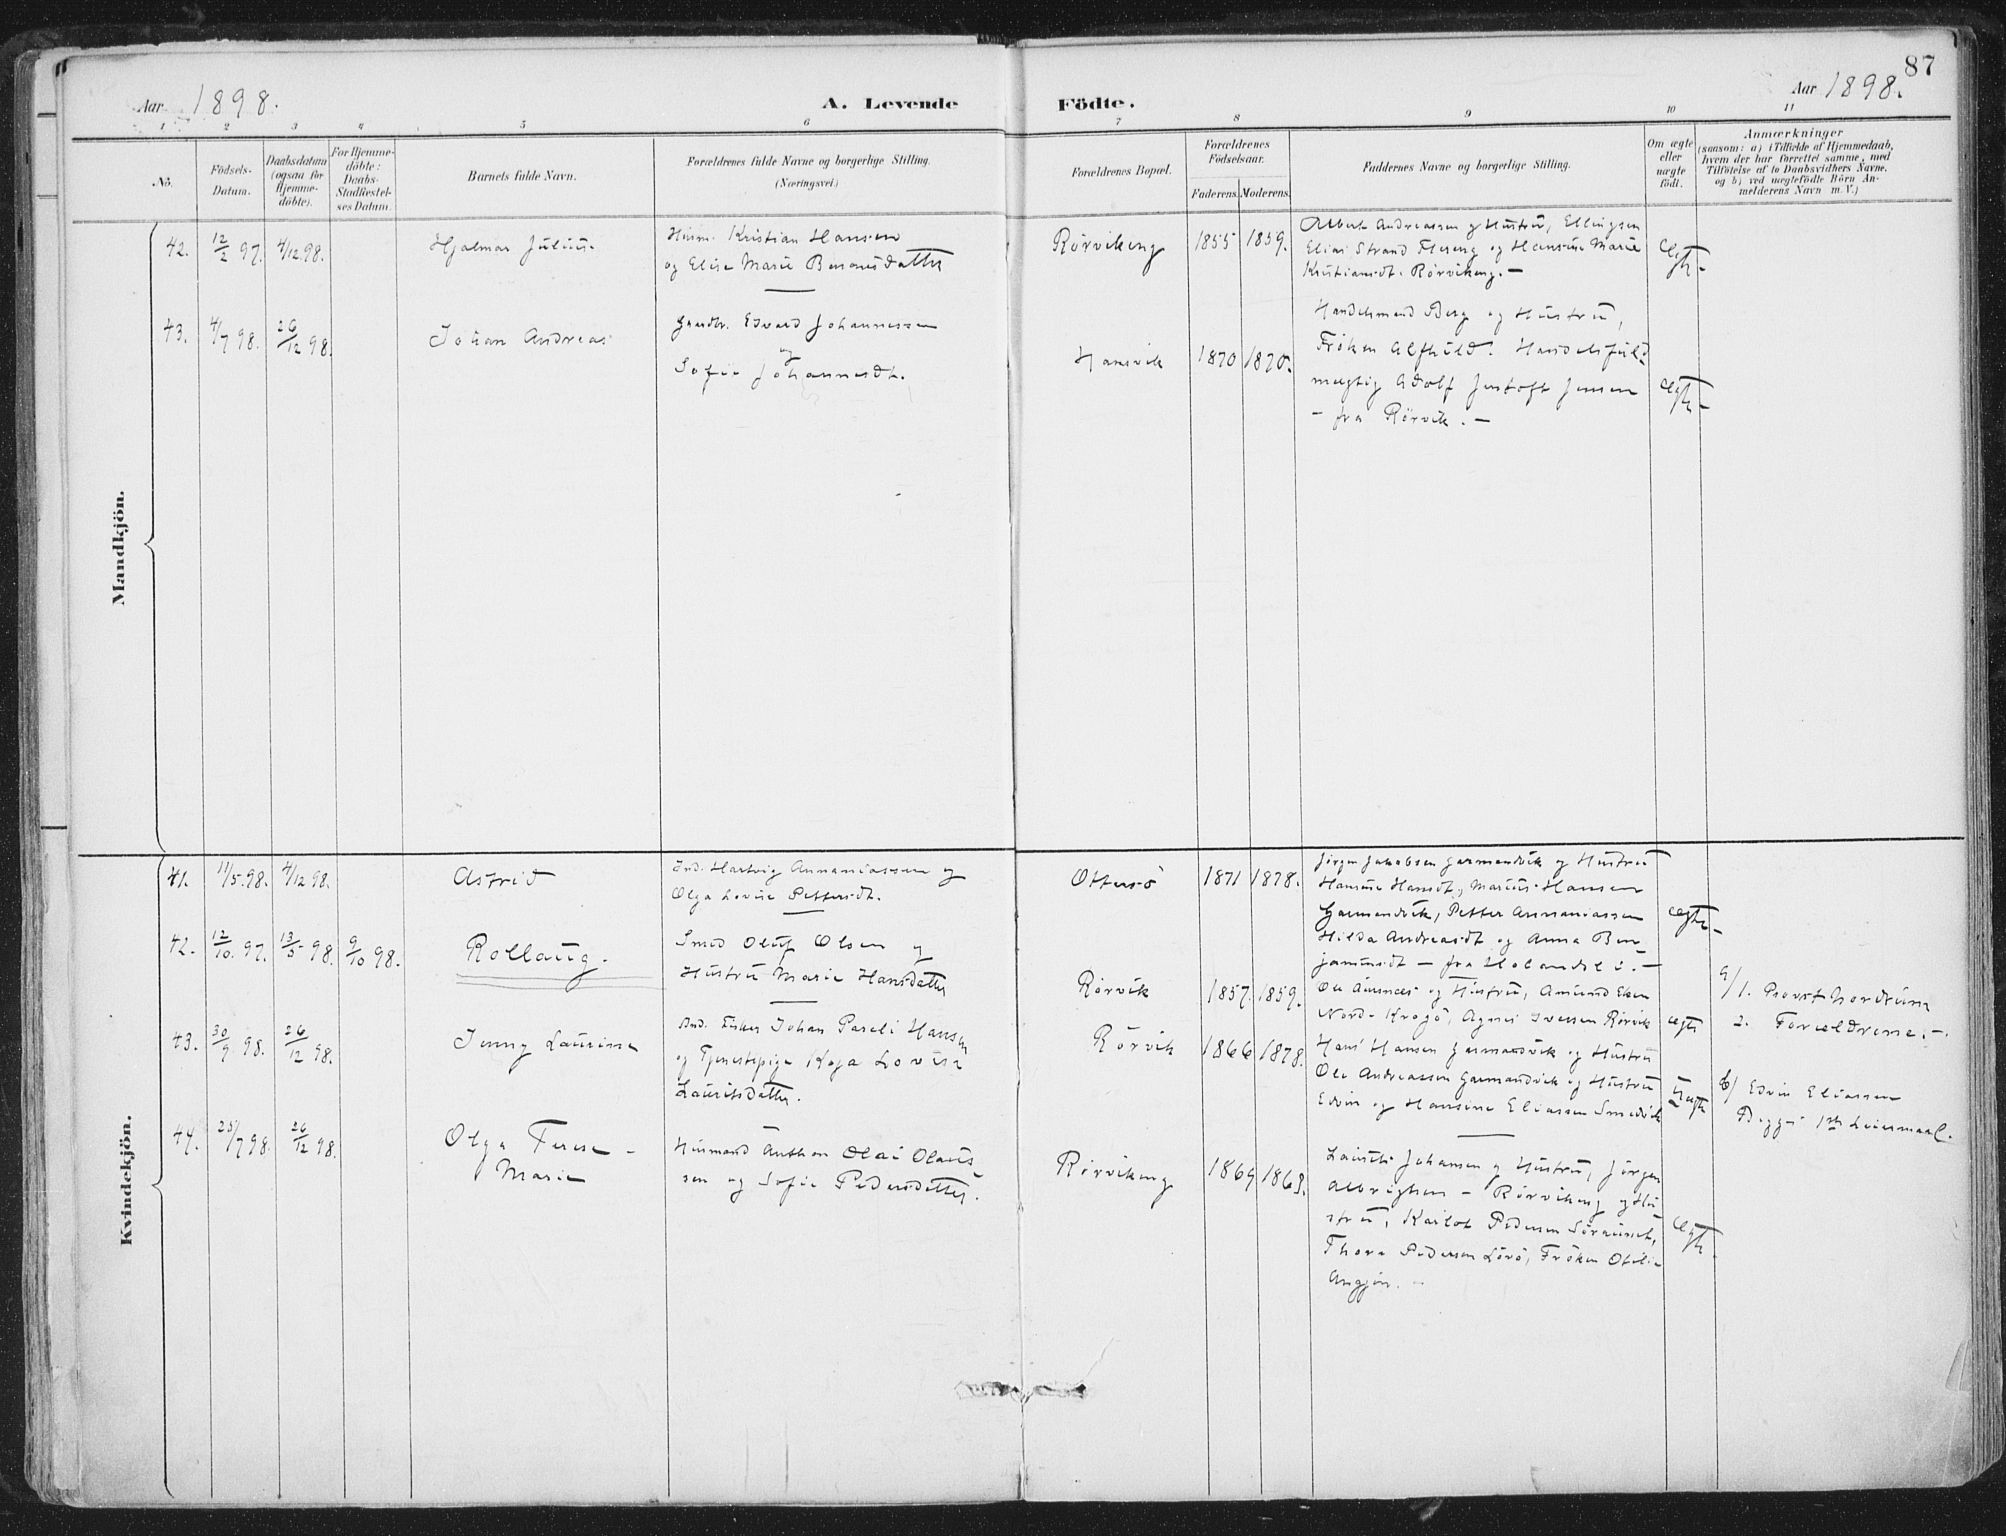 87
Aar 1898.
A. Levende Födte.
Aar 1898.
1 2 3 4 5 6 7 8 9 10 11
No.
Födsels-
Datum.
Daabsdatum
(ogsaa for
Hjemme-
döbte).
For Hjemme-
döbte:
Daabs-
Stadfæstel-
ses Datum.
Barnets fulde Navn.
Forældrenes fulde Navne og borgerlige Stilling.
(Næringsvei.)
Forældrenes Bopæl.
Forældrenes
Födselsaar.
Faderens. Moderens.
Faddernes Navne og borgerlige Stilling.
Om ægte
eller
uægte
födt.
Anmærkninger
(saasom: a) i Tilfælde af Hjemmedaab,
hvem der har forrettet samme, med
Tilföielse af to Daabsvidners Navne,
og b) ved uægtefödte Börn An-
melderens Navn m. V.)
Mandkjön.
42. 12/2 97. 4/12 98.
Hjalmar Julius.
Husm. Kristian Hansen
og Elise Marie Benonisdatter
Rørvikeng 1855 1859.
Albert Andreassen og Hustru, Ellingsen
Elias Strand Flereng og Hansine Marie
Kristiansdt. Rørvikeng. —
Ægte —
43. 4/7 98. 26/12 98.
Johan Andreas
Gaardbr. Edvard Johannessen
og
Sofie Johannesdt.
Hansvik 1870 1870.
Handelsmand Berg og Hustru,
Frøken Alfhild. Handelsfuld-
mægtig Adolf Justoft Jensen
— fra Rørvik. —
Ægte —
Kvindekjön.
41. 11/5 98. 4/12 98.
Astrid
Ind. Hartvig Annaniassen og
Olga Lovise Pettersdt.
Ottersö 1871 1878.
Jörgen Jakobsen Garmandvik og Hustru
Hansine Hansdt., Marius Hansen
Garmandvik, Petter Annaniassen
Hilda Andreasdt og Anna Ben-
jaminsdt — fra
Ægte —
42. 12/10. 97. 13/5 98. 9/10 98.
Rollaug.
Smed Oluf Olsen og
Hustru Marie Hansdatter
Rørvik 1857. 1859.
Ole Aarsnes og Hustru, Amund Eken
Nord-Krogö, Agnes Iversen Rørvik
Ægte
a/1. Provst Nordrum
2. Forældrene. —
43. 30/9 98. 26/12 98.
Jenny Laurine
Ind. Fisker Johan Pareli Hansen
og Tjenestepige Kaja Lovisa
Lauritsdatter.
Rörvik 1866 1878.
Hans Hansen Garmandvik og Hustru
Ole Andreassen Garmandvik og Hustru
Edvin og Hansine Eliassen Smedvik
Uægte
b/ Edvin Eliassen
Begges 1ste Leiermaal.
44. 25/7 98. 26/12 98.
Olga Terese -
Marie
Husmand Anthon Olai Olaus-
sen og Sofie Pedersdatter.
Rørvikeng 1869 1863.
Laurits Johansen og Hustru, Jörgen
Albrigtsen — Rørvikeng og Hu-
stru, Karlot Pedersen
Thora Pedersen Lörö, Fröken Otilie
Angjon. —
Ægte —